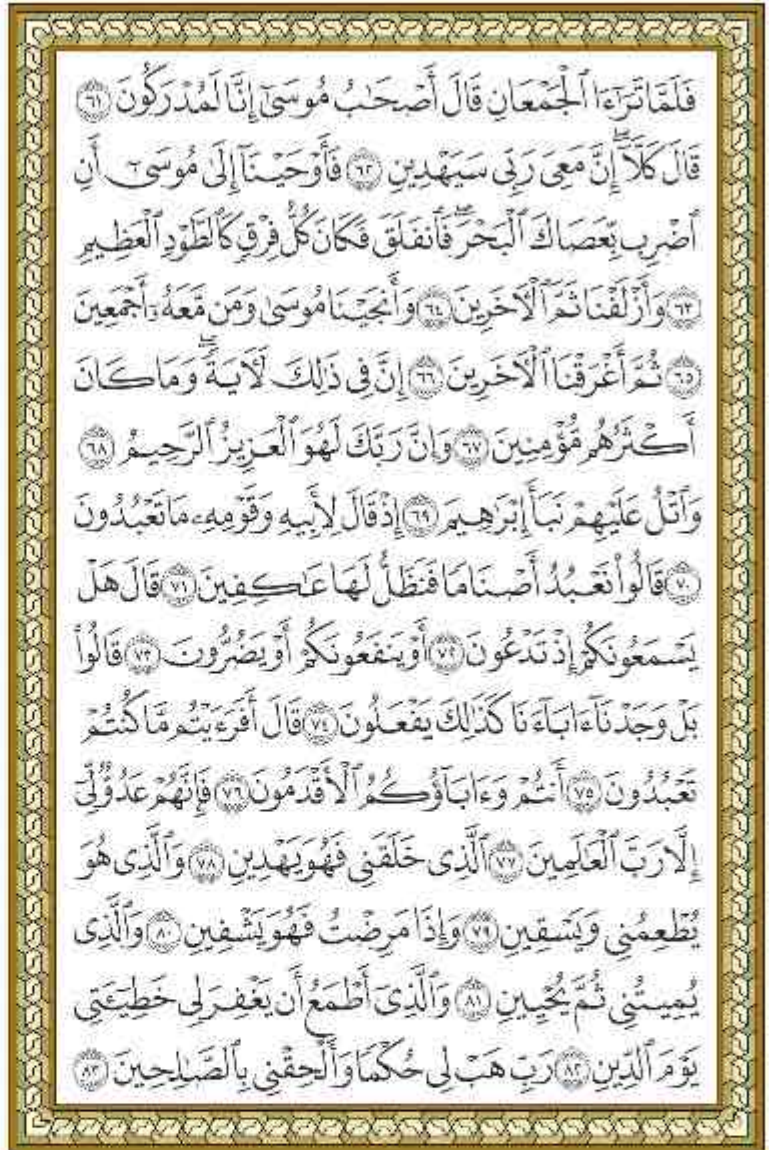 فَلَمَّا تَرَٰٓءَا ٱلْجَمْعَانِ قَالَ أَصْحَٰبُ مُوسَىٰٓ إِنَّا لَمُدْرَكُونَ ٦١
قَالَ كَلَّآ ۖ إِنَّ مَعِىَ رَبِّى سَيَهْدِينِ ٦٢ فَأَوْحَيْنَآ إِلَىٰ مُوسَىٰٓ أَنِ
ٱضْرِب بِّعَصَاكَ ٱلْبَحْرَ ۖ فَٱنفَلَقَ فَكَانَ كُلُّ فِرْقٍ كَٱلطَّوْدِ ٱلْعَظِيمِ
٦٣ وَأَزْلَفْنَا ثَمَّ ٱلْءَاخَرِينَ ٦٤ وَأَنجَيْنَا مُوسَىٰ وَمَن مَّعَهُۥٓ أَجْمَعِينَ
٦٥ ثُمَّ أَغْرَقْنَا ٱلْءَاخَرِينَ ٦٦ إِنَّ فِى ذَٰلِكَ لَءَايَةً ۖ وَمَا كَانَ
أَكْثَرُهُم مُّؤْمِنِينَ ٦٧ وَإِنَّ رَبَّكَ لَهُوَ ٱلْعَزِيزُ ٱلرَّحِيمُ ٦٨
وَٱتْلُ عَلَيْهِمْ نَبَأَ إِبْرَٰهِيمَ ٦٩ إِذْ قَالَ لِأَبِيهِ وَقَوْمِهِۦ مَا تَعْبُدُونَ
٧٠ قَالُوا۟ نَعْبُدُ أَصْنَامًا فَنَظَلُّ لَهَا عَٰكِفِينَ ٧١ قَالَ هَلْ
يَسْمَعُونَكُمْ إِذْ تَدْعُونَ ٧٢ أَوْ يَنفَعُونَكُمْ أَوْ يَضُرُّونَ ٧٣ قَالُوا۟
بَلْ وَجَدْنَآ ءَابَآءَنَا كَذَٰلِكَ يَفْعَلُونَ ٧٤ قَالَ أَفَرَءَيْتُم مَّا كُنتُمْ
تَعْبُدُونَ ٧٥ أَنتُمْ وَءَابَآؤُكُمُ ٱلْأَقْدَمُونَ ٧٦ فَإِنَّهُمْ عَدُوٌّ لِّىٓ
إِلَّا رَبَّ ٱلْعَٰلَمِينَ ٧٧ ٱلَّذِى خَلَقَنِى فَهُوَ يَهْدِينِ ٧٨ وَٱلَّذِى هُوَ
يُطْعِمُنِى وَيَسْقِينِ ٧٩ وَإِذَا مَرِضْتُ فَهُوَ يَشْفِينِ ٨٠ وَٱلَّذِى
يُمِيتُنِى ثُمَّ يُحْيِينِ ٨١ وَٱلَّذِىٓ أَطْمَعُ أَن يَغْفِرَ لِى خَطِيٓـَٔتِى
يَوْمَ ٱلدِّينِ ٨٢ رَبِّ هَبْ لِى حُكْمًا وَأَلْحِقْنِى بِٱلصَّٰلِحِينَ ٨٣